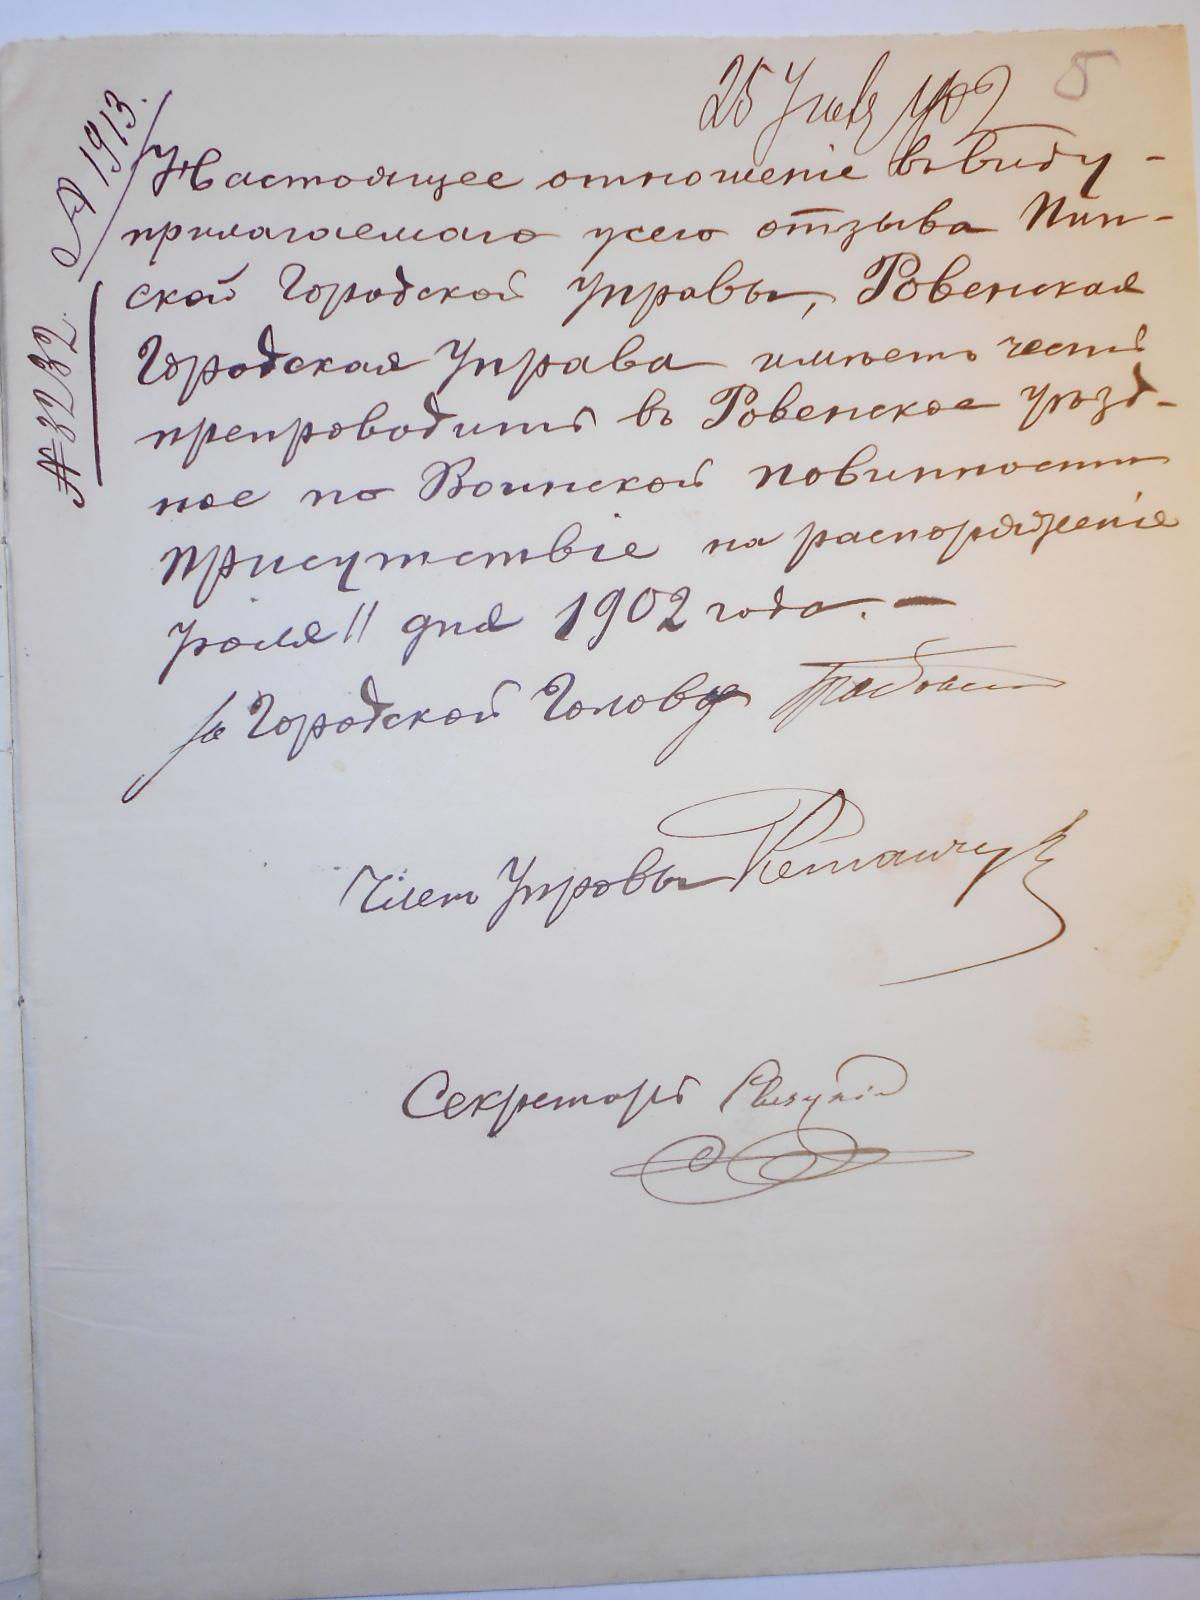 5
25 Іюля 1902
№ 1913.
№ 3232.
Настоящее отношеніе въ виду
прилагаемаго у сего отзыва Пин-
ской Городской Управы, Ровенская
Городская Управа имѣетъ честь
препроводить въ Ровенское уѣзд-
ное по Воинской повинности
Присутствіе на распоряженіе
Іюля 11 дня 1902 года. —
За Городской Голова
Членъ Управы
Секретарь